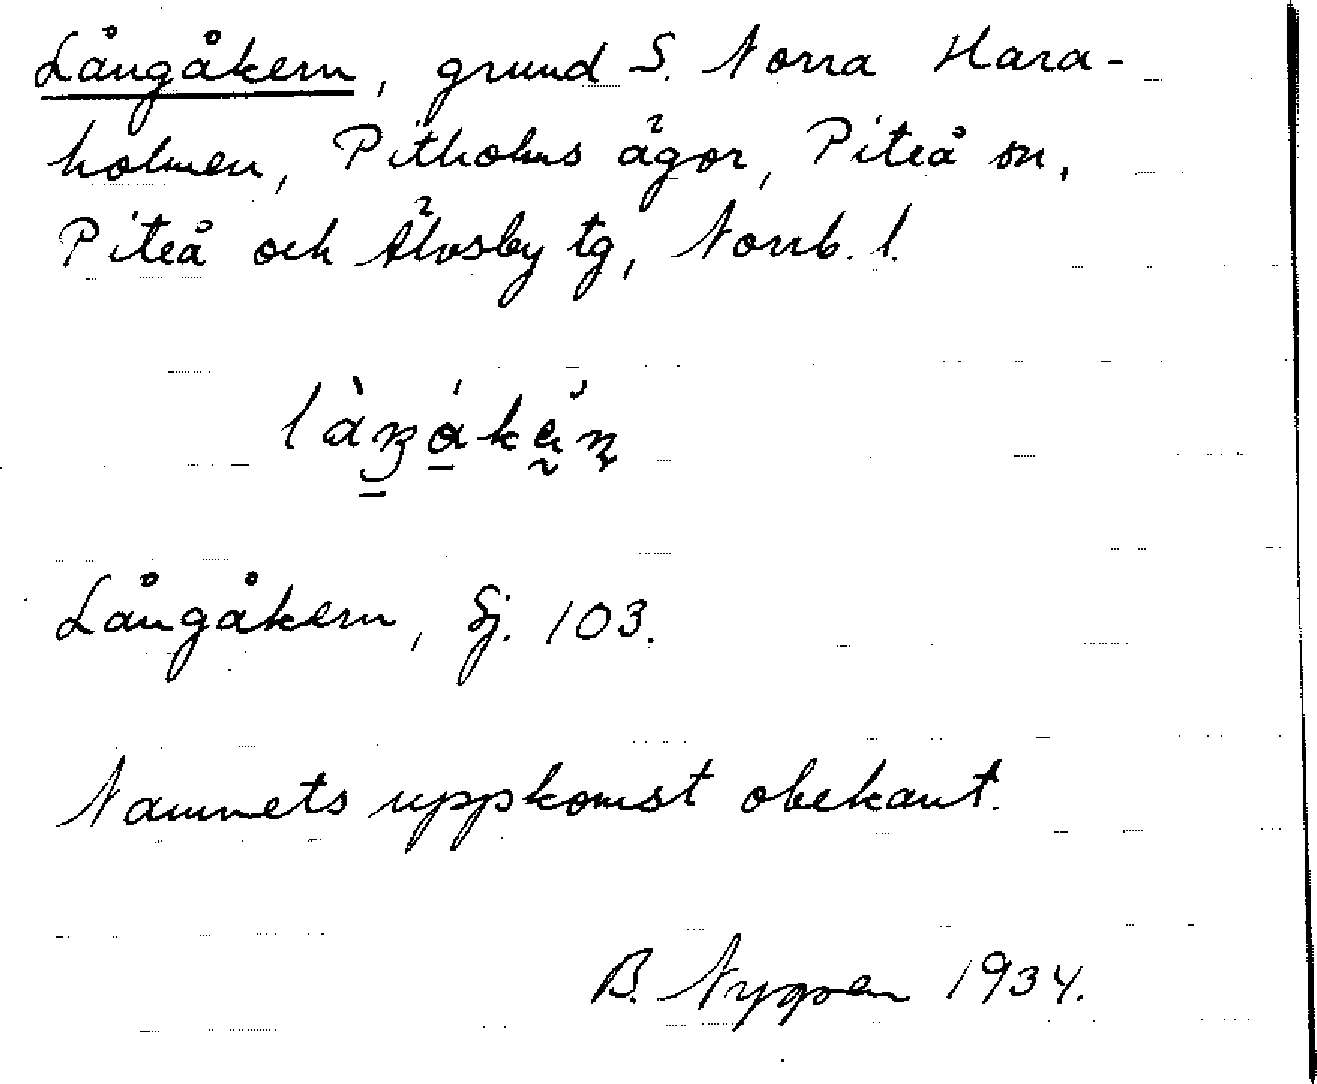 Långåkern, grund S. Norra Hara-
holmen, Pitholms ägor, Piteå sn,
Piteå och Älvsby tg, Norrb. l.
Långåkern, Sj. 103.
Namnets uppkomst obekant.
B. Nygren 1934.